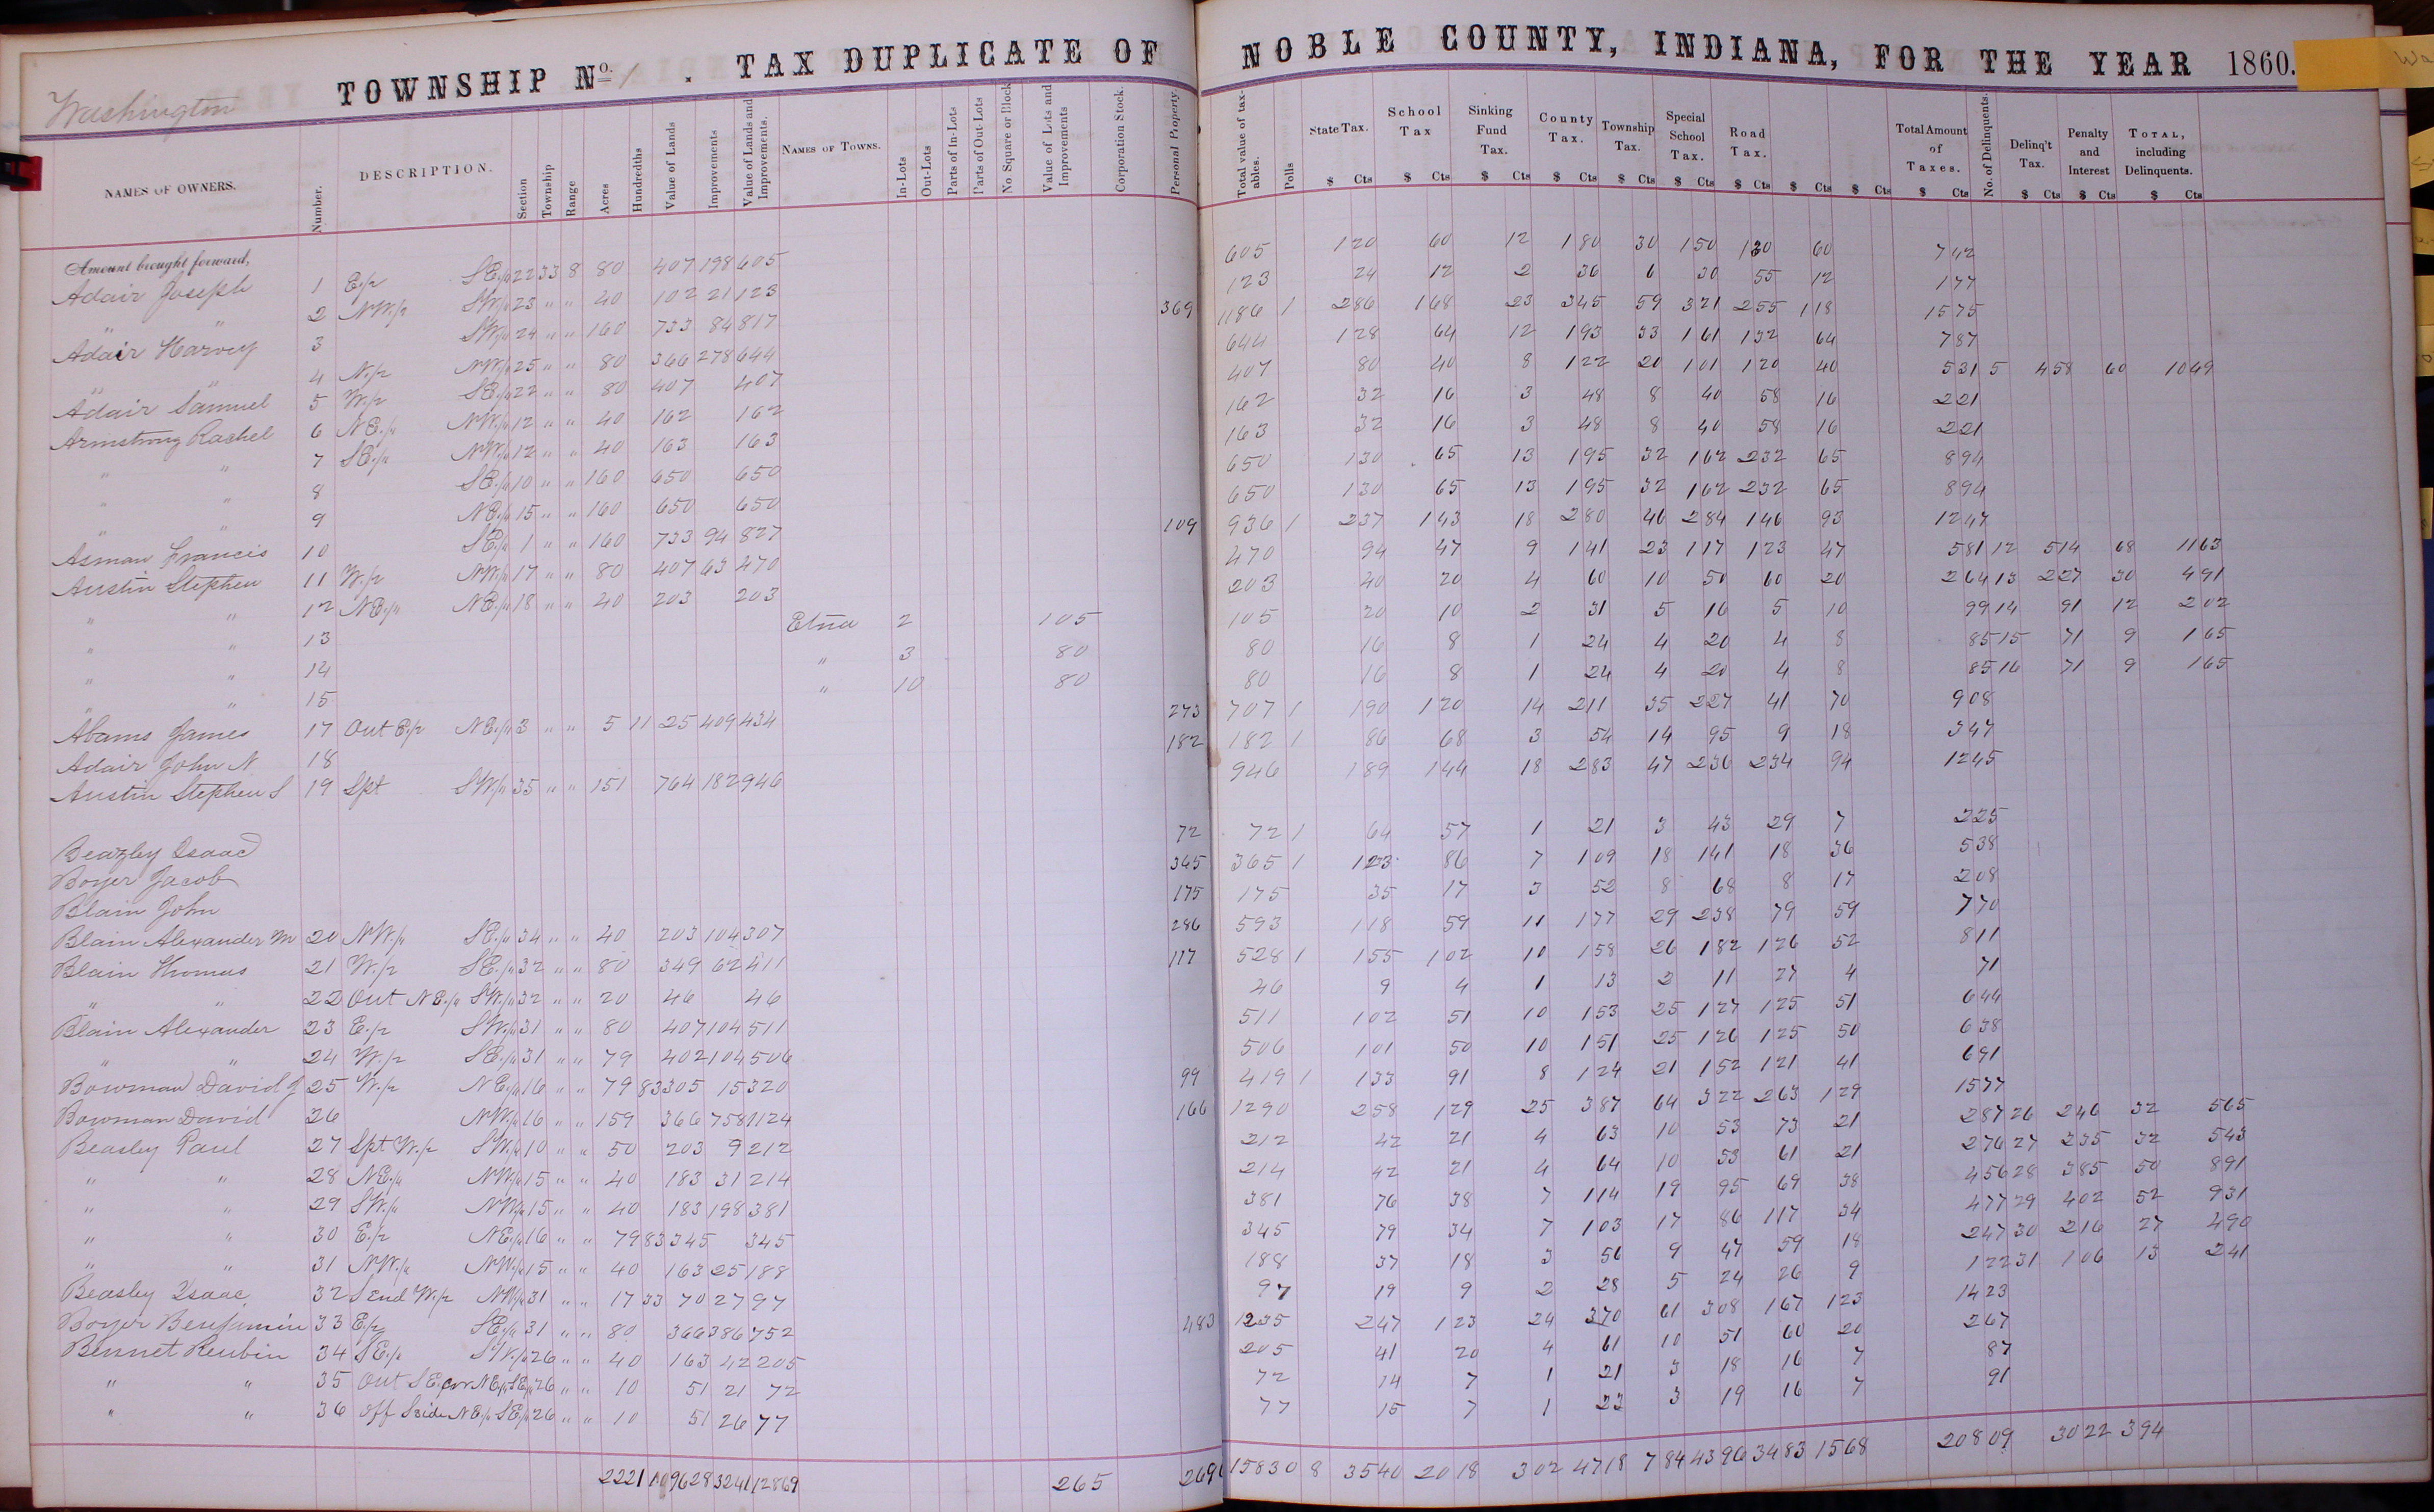 TOWNSHIP No. 1 . TAX DUPLICATE OF NOBLE COUNTY, INDIANA, FOR THE YEAR 1860.
Washington
NAMES OF OWNERS. Number. DESCRIPTION. Section Township Range Acres Hundredths Value of Lands Improvements Value of Lands and Improvements. NAMES OF TOWNS. In-Lots Out-Lots Parts of In-Lots Parts of Out-Lots No Square or Block Value of Lots and Improvements Corporation Stock. Personal Property. Total value of taxables. Polls State Tax. School Tax Sinking Fund Tax. County Tax. Township Tax. Special School Tax. Road Tax. Total Amount of Taxes. No. of Delinquents. Delinq't Tax. Penalty and Interest TOTAL, including Delinquents.
$ Cts $ Cts $ Cts $ Cts $ Cts $ Cts $ Cts $ Cts $ Cts $ Cts $ Cts $ Cts $ Cts
Amount brought forward,
Adair Joseph 1 E./2 S E./4 22 33 8 80 407 198 605 605 120 60 12 180 30 150 130 60 742
" " 2 NW./4 SW./4 23 " " 40 102 21 123 123 24 12 2 36 6 30 55 12 177
Adair Harvey 3 SW./4 24 " " 160 733 84 817 369 1186 1 286 168 23 345 59 321 255 118 1575
" " 4 N./2 NW./4 25 " " 80 366 278 644 644 128 64 12 193 33 161 132 64 787
Adair Samuel 5 W./2 SE./4 22 " " 80 407 407 407 80 40 8 122 20 101 120 40 531 5 458 60 1049
Armstrong Rachel 6 NE./4 NW./4 12 " " 40 162 162 162 32 16 3 48 8 40 58 16 221
" " 7 SE./4 NW./4 12 " " 40 163 163 163 32 16 3 48 8 40 58 16 221
" " 8 SE./4 10 " " 160 650 650 650 130 65 13 195 32 162 232 65 894
" " 9 NE./4 15 " " 160 650 650 650 130 65 13 195 32 162 232 65 894
Asman Francis 10 SE./4 1 " " 160 733 94 827 109 936 1 237 143 18 280 46 284 146 93 1247
Austin Stephen 11 W./2 NW./4 17 " " 80 407 63 470 470 94 47 9 141 23 117 123 47 581 12 514 68 1163
" " 12 NE./4 NE./4 18 " " 40 203 203 203 40 20 4 60 10 50 60 20 264 13 227 30 491
" " 13 Etna 2 105 105 20 10 2 31 5 16 5 10 99 14 91 12 202
" " 14 " 3 80 80 16 8 1 24 4 20 4 8 85 15 71 9 165
" " 15 " 10 80 80 16 8 1 24 4 20 4 8 85 16 71 9 165
Abams James 17 Out E./2 NE./4 3 " " 5 11 25 409 434 273 707 1 190 120 14 211 35 227 41 70 908
Adair John N 18 182 182 1 86 68 3 54 14 95 9 18 347
Austin Stephen S 19 Spt SW./4 35 " " 151 764 182 946 946 189 144 18 283 47 236 234 94 1245
Beazley Isaac 72 72 1 64 57 1 21 3 43 29 7 225
Boyer Jacob 365 365 1 123 86 7 109 18 141 18 36 538
Blain John 175 175 35 17 3 52 8 68 8 17 208
Blain Alexander M 20 NW./4 SE./4 34 " " 40 203 104 307 286 593 118 59 11 177 29 238 79 59 770
Blain Thomas 21 W./2 SE./4 32 " " 80 349 62 411 117 528 1 155 102 10 158 26 182 126 52 811
" " 22 Out NE./4 SW./4 32 " " 20 46 46 46 9 4 1 13 2 11 27 4 71
Blain Alexander 23 E./2 SW./4 31 " " 80 407 104 511 511 102 51 10 153 25 127 125 51 644
" " 24 W./2 SE./4 31 " " 79 402 104 506 506 101 50 10 151 25 126 125 50 638
Bowman David J 25 W./2 NE./4 16 " " 79 83 305 15 320 99 419 1 133 91 8 124 21 152 121 41 691
Bowman David 26 NW./4 16 " " 159 366 758 1124 166 1290 258 129 25 387 64 322 263 129 1577
Beasley Paul 27 Spt W./2 SW./4 10 " " 50 203 9 212 212 42 21 4 63 10 53 73 21 287 26 246 32 565
" " 28 NE./4 NW./4 15 " " 40 183 31 214 214 42 21 4 64 10 53 61 21 276 27 235 32 543
" " 29 SW./4 NW./4 15 " " 40 183 198 381 381 76 38 7 114 19 95 69 38 456 28 385 50 891
" " 30 E./2 NE./4 16 " " 79 83 345 345 345 79 34 7 103 17 86 117 34 477 29 402 52 931
" " 31 NW./4 NW./4 15 " " 40 163 25 188 188 37 18 3 56 9 47 59 18 247 30 216 27 490
Beasley Isaac 32 S end W./2 NW./4 31 " " 17 33 70 27 97 97 19 9 2 28 5 24 26 9 122 31 106 13 241
Boyer Benjamin 33 E./2 SE./4 31 " " 80 366 386 752 483 1235 247 123 24 370 61 308 167 123 1423
Bennet Reubin 34 SE./4 SW./4 26 " " 40 163 42 205 205 41 20 4 61 10 51 60 20 267
" " 35 Out SE cor NE./4 SE./4 26 " " 10 51 21 72 72 14 7 1 21 3 18 16 7 87
" " 36 Off S side NE./4 SE./4 26 " " 10 51 26 77 77 15 7 1 23 3 19 16 7 91
2221 10 9628 3241 12869 265 269 15830 8 3540 2018 302 4718 784 4396 3483 1568 20809 3022 394